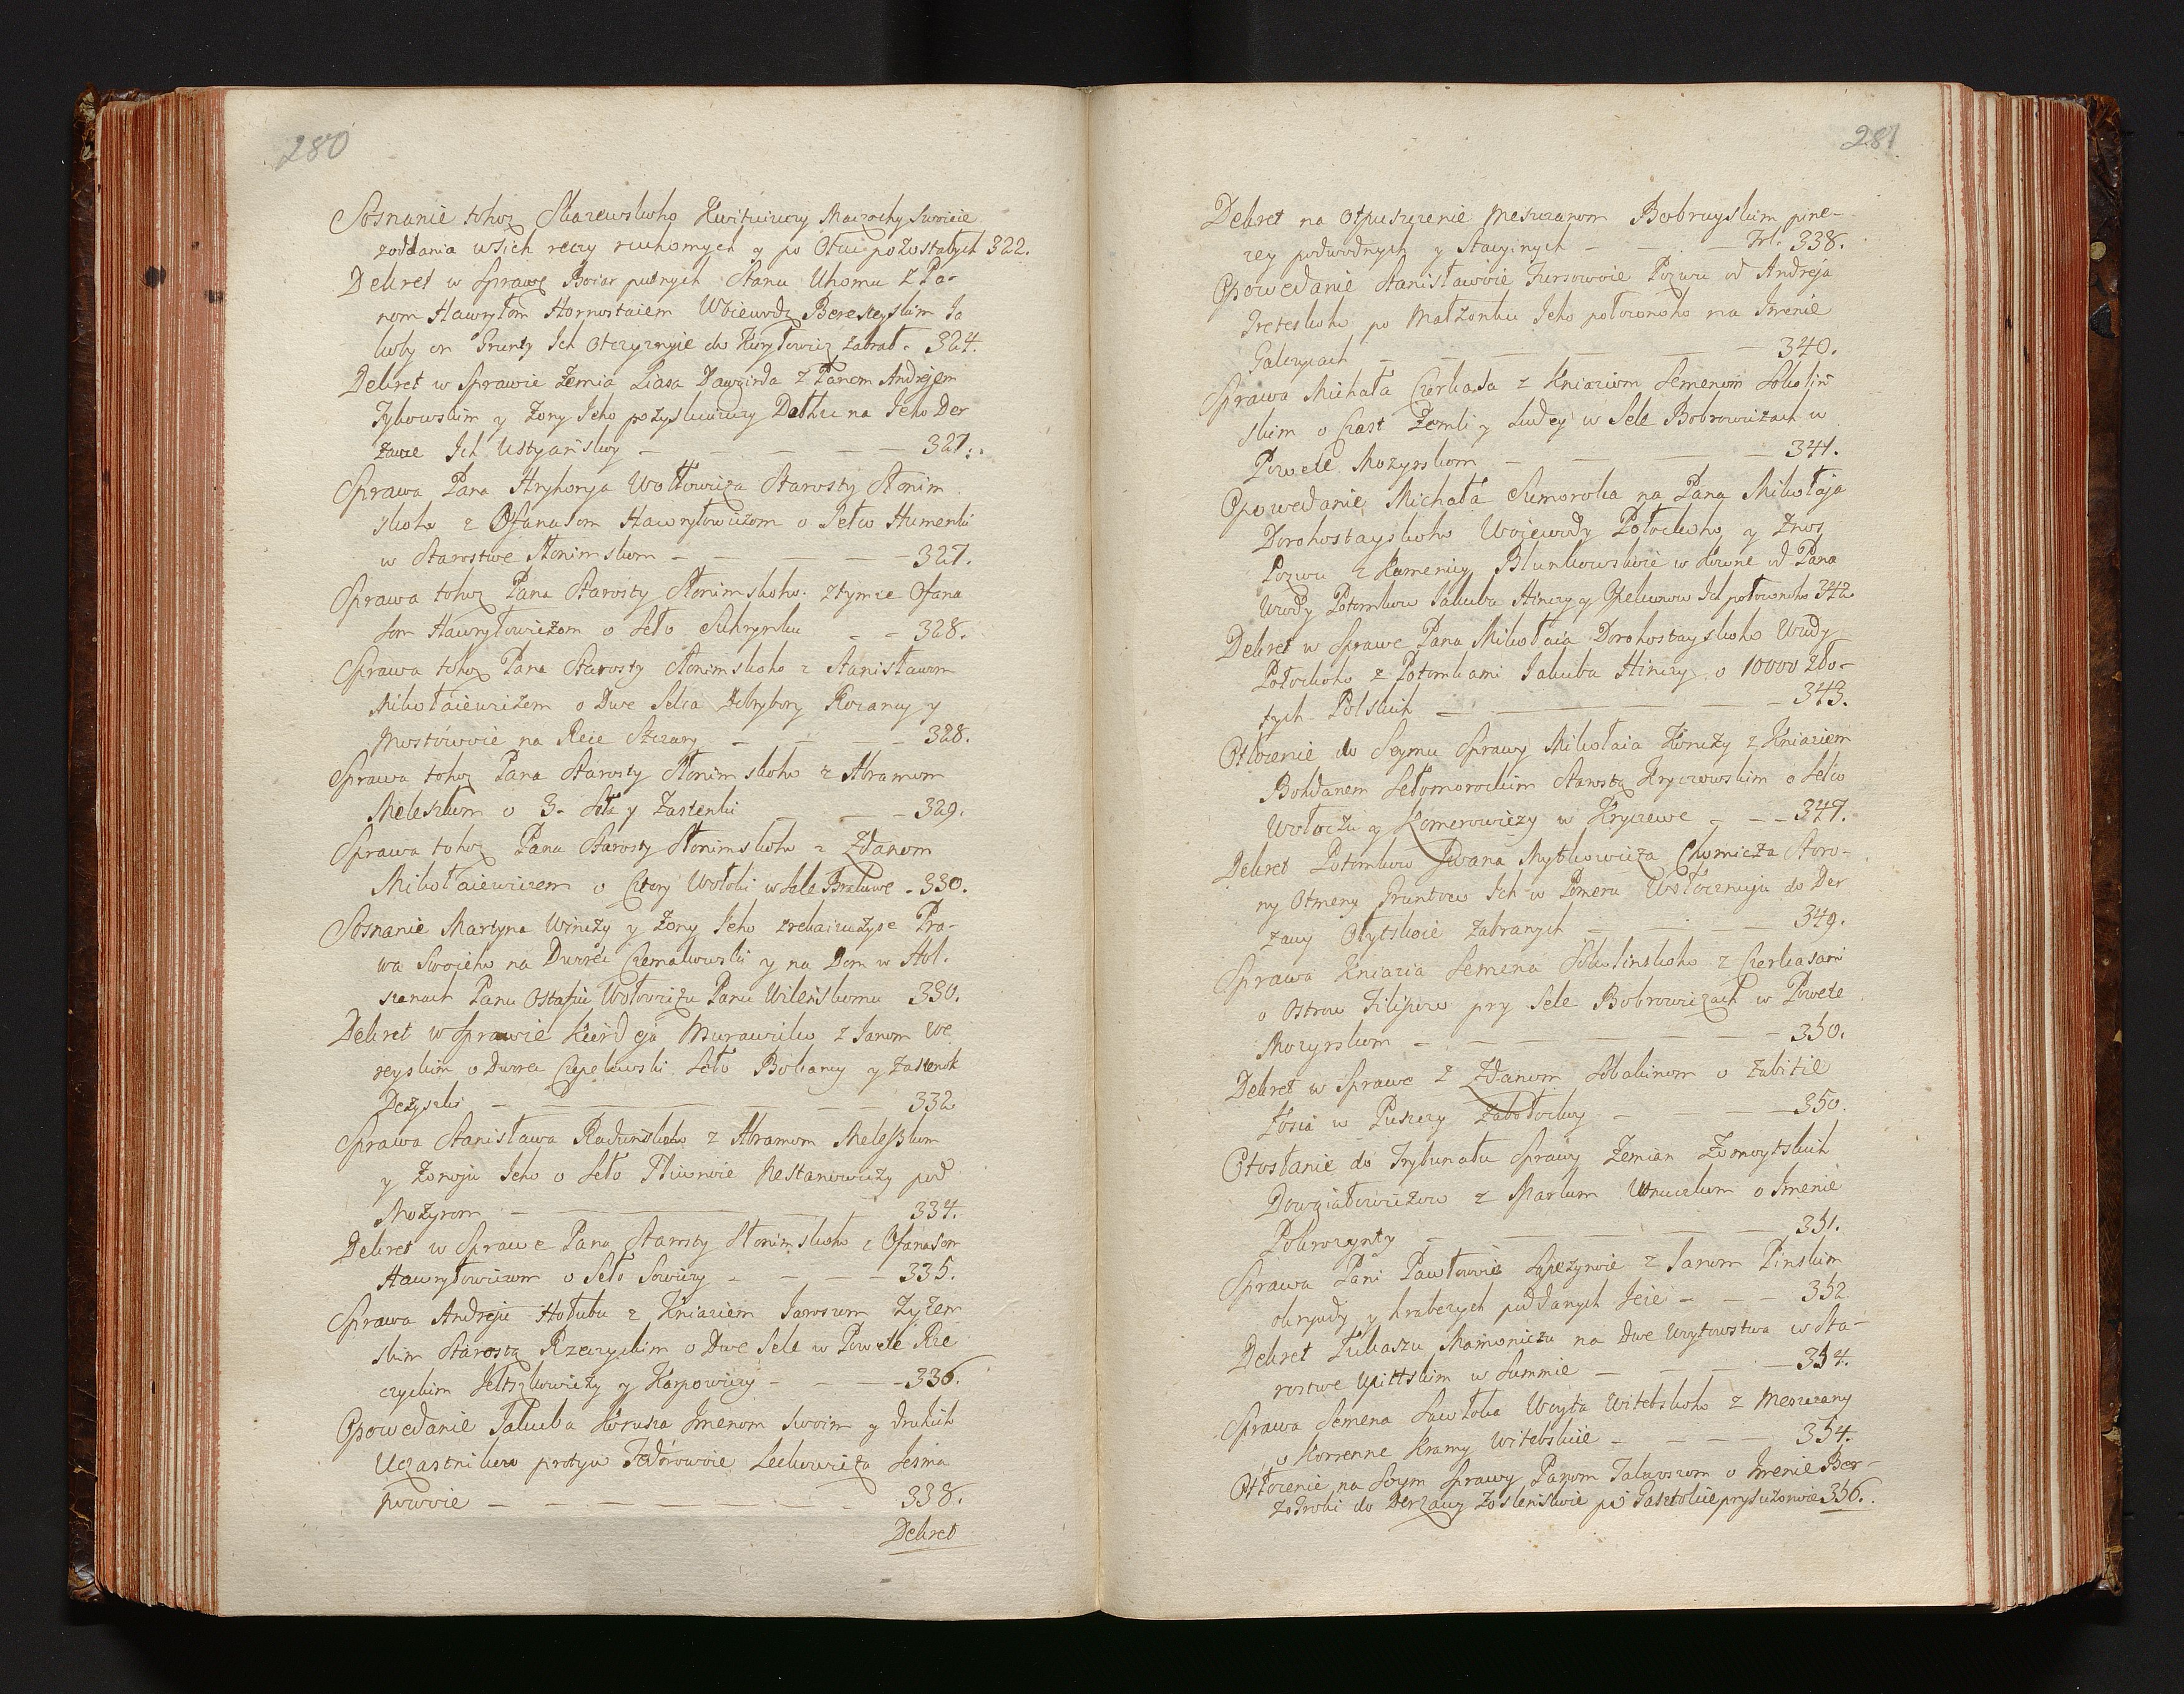 280
Soznanie tohoz Skarewskoho Kwitujuczy Maczochy Swoieie
zoddania wsich reczy ruchomych y po Otcu pozostałych 322.
Dekret w Sprawe Boiar putnych Stanu Uhomu z Pa-
nom Hawryłom Hornostaiem Woiewodz Bereskeyskim Ia
koby on Grunty Ich Otczyznyie do Kuryłowicz zabrał. 324.
Dekret w Sprawie Zemia Liasa Dawgirda z Panom Andrejem
Tykowskim y Zony Jeho pozyskuiuczy Dołhu na Jeho Der
zawe Ich Ustyanskoy — — — — — 327.
Sprawa Pana Hryhorya Wołłowicza Starosty Słonim
skoho z Ofanasom Hawryłowiczom o Sełco Humenki
w Starostwe Słonimskom — — — — 327.
Sprawa tohoz Pana Starosty Słonimskoho z tymze Ofana
som Hawryłowiczom o Seło Suhrynku — — 328.
Sprawa tohoz Pana Starosty Słonimskoho z Stanisławom
Mikołaiewiczem o Dwe Selca Dobrybory Kozancy y
Mostowoie na Rece Szczary — — — 328.
Sprawa tohoz Pana Starosty Słonimskoho z Abramom
Meleszkom o 3. Seła y Zastenki — — — 329.
Sprawa tohoz Pana Starosty Słonimskoho z Zdanom
Mikołaiewiczem o Cztery Wołoki w Sele Brakowe - 330.
Soznanie Martyna Winczy y Zony Jeho zrekaiuczyse Pra-
wa Swoieho na Dworec Czemakowski y na Dom w Hol-
szanach Panu Ostafiu Wołowiczu Panu Wilenskomu 330.
Dekret w Sprawie Kierdeja Murawiko z Janom We
reyskim o Dworec Czepelowski Seło Bokancy y Zastenok
Dezyszki — — — — — 332
Sprawa Stanisława Radunskoho z Abramom Meleszkom
y Zonoju Jeho o Seło Tkiwnoie Nestanowiczy pod
Mozyrom — — — — — 334.
Dekret w Sprawe Pana Starosty Słonimskoho z Ofanasom
Hawryłowiczom o Seło Sowiczy — — — — 335.
Sprawa Andreja Hołubu z Kniaziem Jaroszom Zyzem
skim Starostą Rzeczyckim o Dwe Sele w Powete Rze
czyckim Jeltszkowiczy y Karpowiczy — — — 336.
Opowedanie Jakuba Korusza Imenom Swoim y druhich
Uczastnikow protyw Fedorowoie Leckowicza Jesma
nowoie — — — — — — 338.
Dekret
281
Dekret na Otpuszczenie Meszczanom Bobruyskim pine-
zey podwodnych y Stacyinych — — — Frl. 338.
Opowedanie Stanisławoie Fursowoie Pozwu od Andreja
Treteskoho po Małzonku Jeho połozonoho na Imenie
Galczycach — — — — — 340.
Sprawa Michała Czerkasa z Kniaziom Semenom Sokolin
skim o Czast Zemli y Ludey w Sele Bobrowiczach w
Powete Mozyrskom — — — — — 341.
Opowedanie Michała Sumoroka na Pana Mikołaja
Dorohostayskoho Wojewody Połockoho y Znos
Pozwu z Kamenicy Blunkowskoie w Kowne od Pana
Wwody Potomkow Jakuba Hinczy y Opekunow Ich połozonoho 342
Dekret w Sprawe Pana Mikołaia Dorohostayskoho Wwdy
Połockoho z Potomkami Jakuba Hinczy o 10000 zło-
tych Polskich — — — — 343.
Otłozenie do Seymu Sprawy Mikołaia Konczy z Kniaziem
Bohdanem Sełomoreckim Starostą Kryczowskim o Sełco
Wołoczu y Komerowiczy w Kryczewe — — — 347.
Dekret Potomkow Iwana Mytkowicza Chomicza Storo-
ny Otmeny Gruntow Ich w Pomeru Wołocznuju do Der
zawy Olytskoie Zabranych — — — 349.
Sprawa Kniazia Semena Sokolinskoho z Czerkasami
o Ostrow Filipow pry Sele Bobrowiczach w Powete
Mozyrskom — — — — — 350.
Dekret w Sprawe z Zdanom Sobakinom o Zabitie
Łosia w Puszczy Zabołockoy — — — 350.
Otosłanie do Trybunału Sprawy Zemian Zomoytskich
Dowgiałowiczow z Markom Wnuczkom o Imenie
Pokroczynty — — — — — 351.
Sprawa Pani Pawłowoie Sapezynoie z Janom Pinskim
okrywdy y hrabezych poddanych Jeie — — — 352.
Dekret Łukaszu Mamoniczu na Dwe Woytowstwa w Sta-
rostwe Upittskim w Summie — — — — 354.
Sprawa Semena Sawłoka Woyta Witebskoho z Meszczany
o Korrenne Kramy Witebskie — — — — 354.
Otłozenie na Seym Sprawy Panom Jakuoszom o Imenie Ber-
zo Troki do Derzawy Zoslenskoie po Gasztolie prysluzonoie 356.